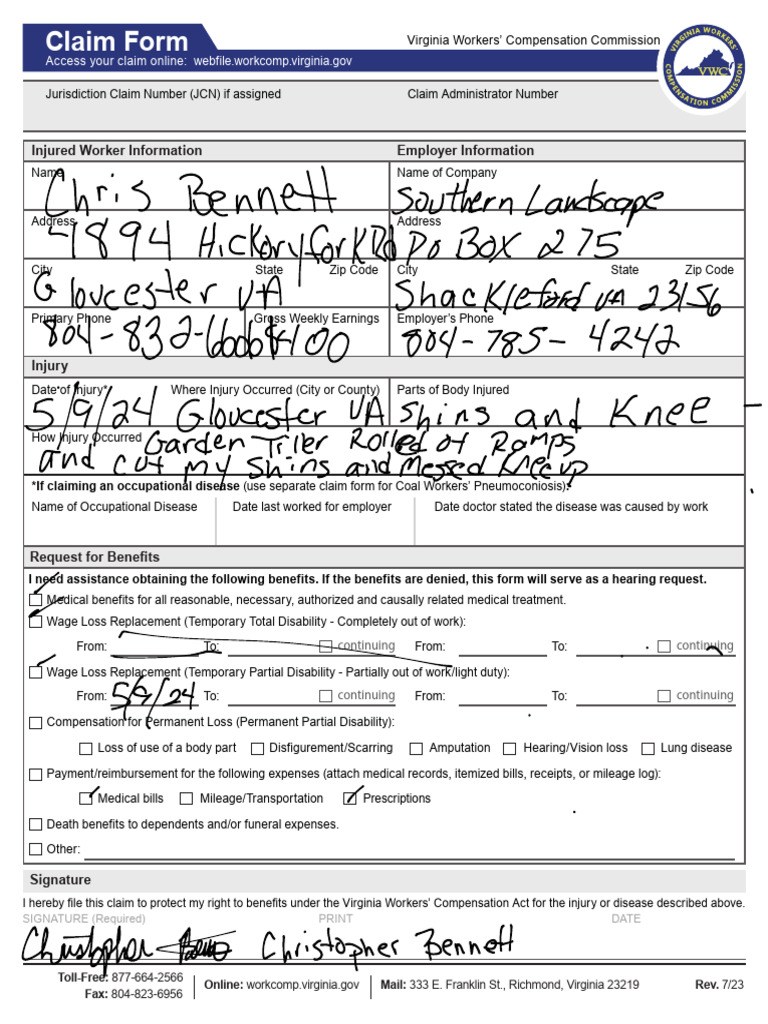 Claim Form
Virginia Workers' Compensation Commission
Access your claim online: webfile.workcomp.virginia.gov
VIRGINIA WORKERS' COMPENSATION COMMISSION
VWC
Jurisdiction Claim Number (JCN) if assigned Claim Administrator Number
Injured Worker Information Employer Information
Name Name of Company
Chris Bennett Southern Landscape
Address Address
4894 Hickory fork Rd Po Box 275
City State Zip Code City State Zip Code
Gloucester VA Shackleford VA 23156
Primary Phone Gross Weekly Earnings Employer's Phone
804-832- 804-785-4242
Injury
Date of Injury* Where Injury Occurred (City or County) Parts of Body Injured
5/9/24 Gloucester VA Shins and Knee
How Injury Occurred Garden Tiler Rolled of Ramps
and cut my Shins and Messed Knee up
*If claiming an occupational disease (use separate claim form for Coal Workers' Pneumoconiosis):
Name of Occupational Disease Date last worked for employer Date doctor stated the disease was caused by work
Request for Benefits
I need assistance obtaining the following benefits. If the benefits are denied, this form will serve as a hearing request.
Medical benefits for all reasonable, necessary, authorized and causally related medical treatment.
Wage Loss Replacement (Temporary Total Disability - Completely out of work):
From: To: continuing From: To: continuing
Wage Loss Replacement (Temporary Partial Disability - Partially out of work/light duty):
From: 5/9/24 To: continuing From: To: continuing
Compensation for Permanent Loss (Permanent Partial Disability):
Loss of use of a body part Disfigurement/Scarring Amputation Hearing/Vision loss Lung disease
Payment/reimbursement for the following expenses (attach medical records, itemized bills, receipts, or mileage log):
Medical bills Mileage/Transportation Prescriptions
Death benefits to dependents and/or funeral expenses.
Other:
Signature
I hereby file this claim to protect my right to benefits under the Virginia Workers' Compensation Act for the injury or disease described above.
SIGNATURE (Required) PRINT DATE
Christopher Christopher Bennett
Toll-Free: 877-664-2566
Fax: 804-823-6956
Online: workcomp.virginia.gov Mail: 333 E. Franklin St., Richmond, Virginia 23219 Rev. 7/23